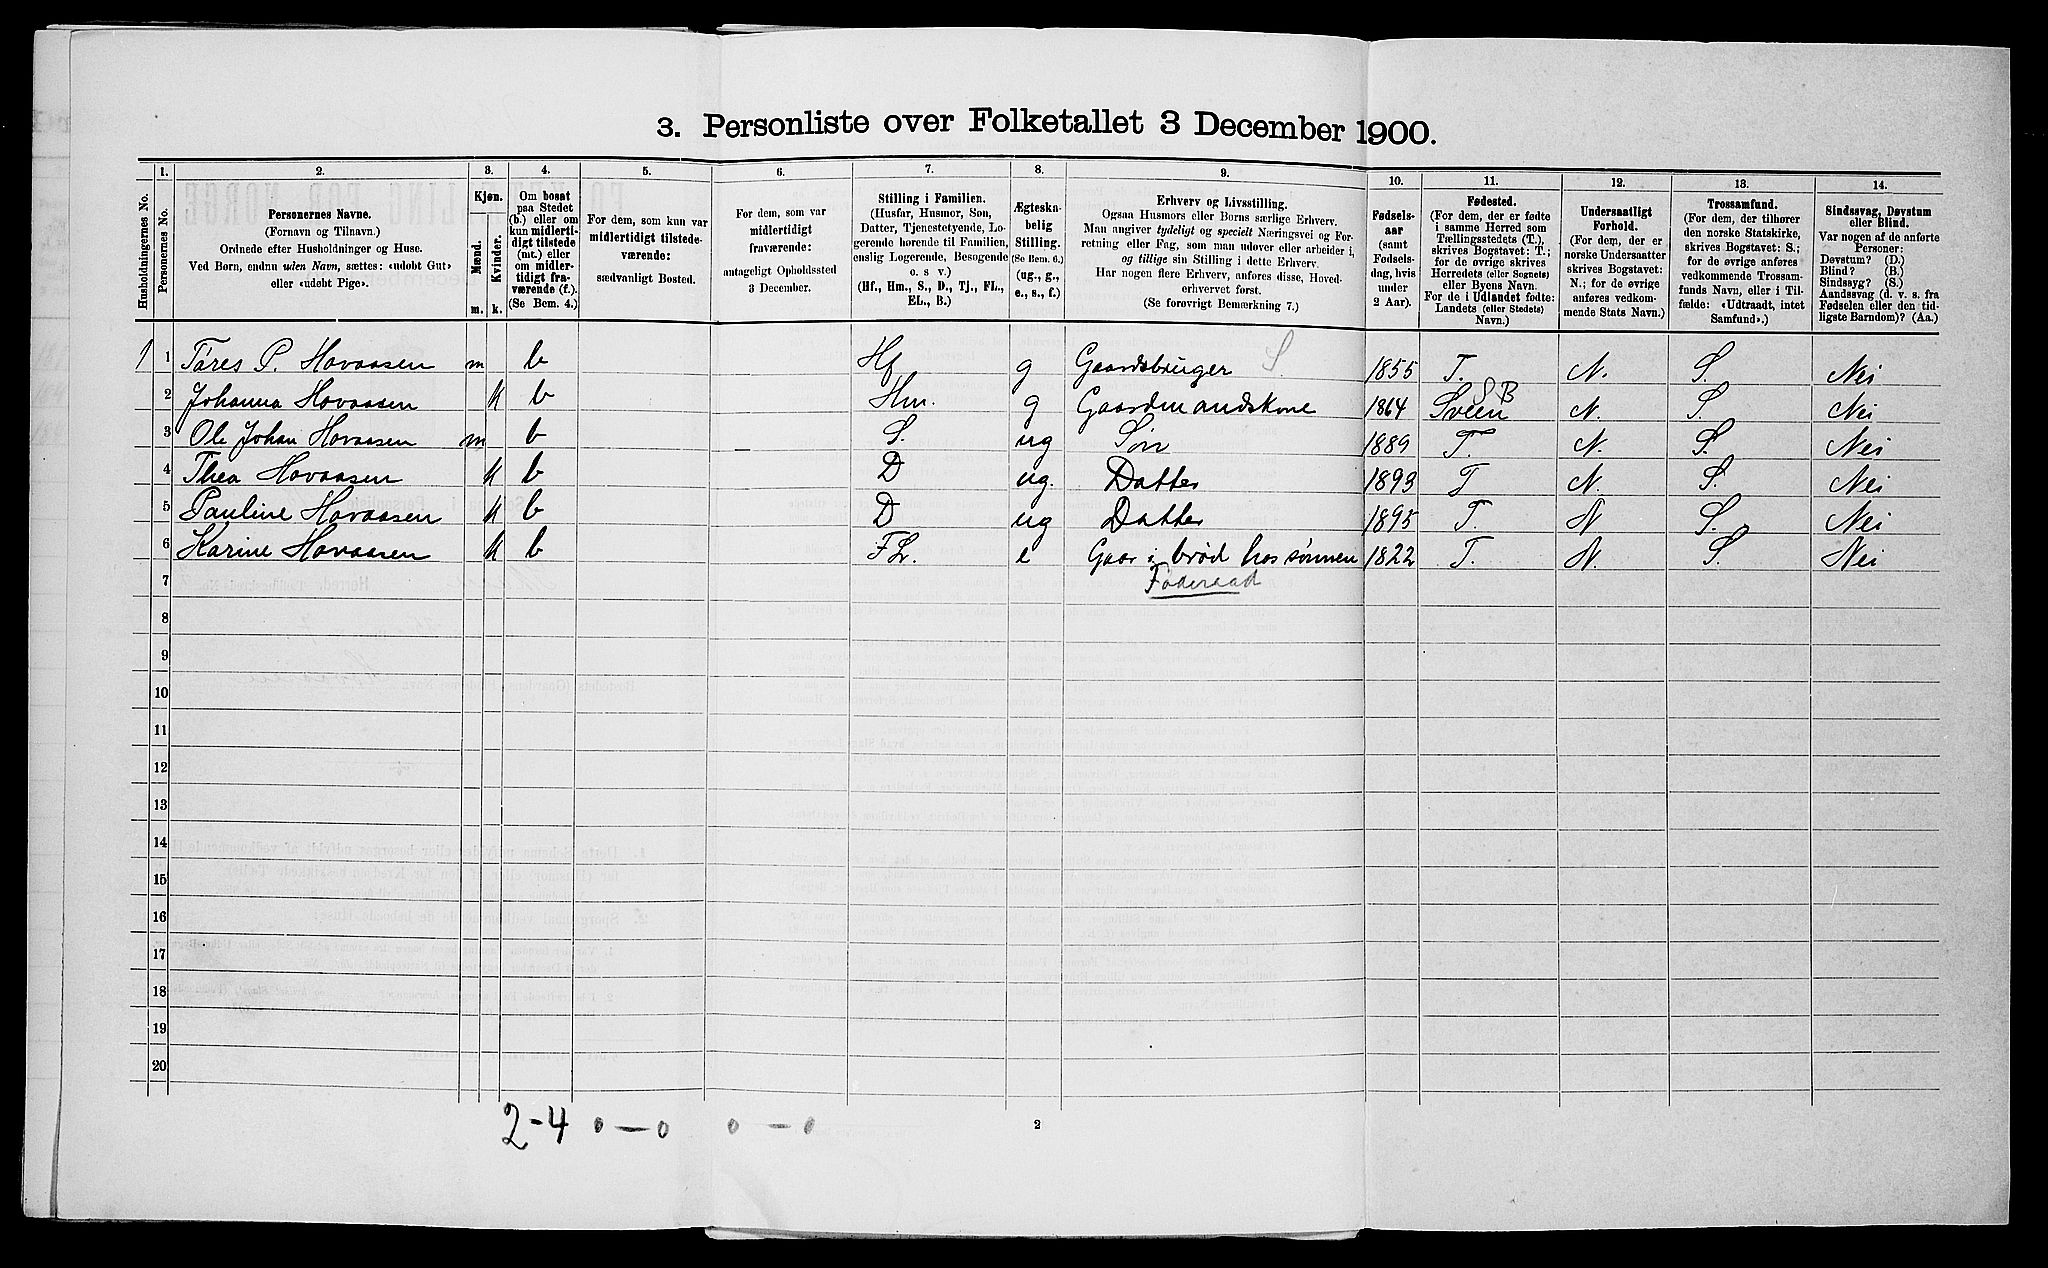 3. Personliste over Folketallet 3 December 1900.
Husholdningernes No.
1.
Personernes No.
2.
Personernes Navne.
(Fornavn og Tilnavn.)
Ordnede efter Husholdninger og Huse.
Ved Børn, endnu uden Navn, sættes: «udøbt Gut»
eller «udøbt Pige».
3.
Kjøn.
Mænd.
Kvinder.
m. k.
4.
Om bosat
paa Stedet
(b.) eller om
kun midlerti-
digt tilstede
(mt.) eller
om midler-
tidigt fra-
værende (f.).
(Se Bem. 4.)
5.
For dem, som kun var
midlertidigt tilstede-
værende:
sædvanligt Bosted.
6.
For dem, som var
midlertidigt
fraværende:
antageligt Opholdssted
3 December.
7.
Stilling i Familien.
(Husfar, Husmor, Søn,
Datter, Tjenestetyende, Lo-
gerende hørende til Familien,
enslig Logerende, Besøgende
o. s v.)
(Hf., Hm., S., D., Tj., FL.,
EL., B.)
8.
Ægteska-
belig
Stilling.
(Se Bem. 6.)
(ug., g.,
e., s., f.)
9.
Erhverv og Livsstilling.
Ogsaa Husmors eller Børns særlige Erhverv.
Man angiver tydeligt og specielt Næringsvei og For-
retning eller Fag, som man udover eller arbeider i,
og tillige sin Stilling i dette Erhverv.
Har nogen flere Erhverv, anføres disse, Hoved-
erhvervet først.
(Se forøvrigt Bemærkning 7.)
10.
Fødsels-
aar
(samt
Fødsels-
dag, hvis
under
2 Aar).
11.
Fødested.
(For dem, der er fødte
i samme Herred som
Tællingsstedets (T.),
skrives Bogstavet: T.;
for de øvrige skrives
Herredets (eller Sognets)
eller Byens Navn.
For de i Udlandet fødte:
Landets (eller Stedets)
Navn.)
12.
Undersaatligt
Forhold.
(For dem, der er
norske Undersaatter
skrives Bogstavet:
N.; for de øvrige
anføres vedkom-
mende Stats Navn.)
13.
Trossamfund.
(For dem, der tilhører
den norske Statskirke,
skrives Bogstavet: S.;
for de øvrige anføres
vedkommende Trossam-
funds Navn, eller i Til-
fælde: «Udtraadt, intet
Samfund».)
14.
Sindssvag, Døvstum
eller Blind.
Var nogen af de anførte
Personer:
Døvstum? (D.)
Blind? (B.)
Sindssyg? (S.)
Aandssvag (d. v. s. fra
Fødselen eller den tid-
ligste Barndom)? (Aa.)
1 1 Tøres P. Hovaasen m b Hf g Gaardsbruger S 1855 T. N. S. Nei
2 Johanna Hovaasen k b Hm. g Gaardmandskone 1864 Sveen SB N. S. Nei
3 Ole Johan Hovaasen m b S. ug Søn 1889 T. N. S. Nei
4 Thea Hovaasen k b D ug. Datter 1893 T N. S. Nei
5 Pauline Hovaasen k b D ug Datter 1895 T. N S. Nei
6 Karine Hovaasen k b FL. e Gaar i brød hos sønnen 1822 T. N. S. Nei
7 Føderaad
8
9
10
11
12
13
14
15
16
17
18
19
20
2-4 0-0 0-0 2